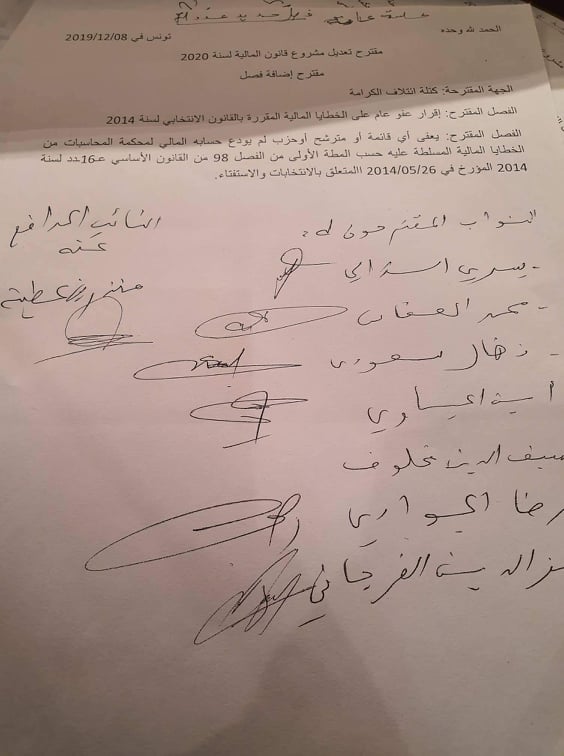 الحمد لله وحده
تونس في 2019/12/08
مقترح تعديل مشروع قانون المالية لسنة 2020
مقترح إضافة فصل
الجهة المقترحة: كتلة ائتلاف الكرامة
الفصل المقترح: إقرار عفو عام على الخطايا المالية المقررة بالقانون الانتخابي لسنة 2014
الفصل المقترح: يعفى أي قائمة أو مترشح أوحزب لم يودع حسابه المالي لمحكمة المحاسبات من
الخطايا المالية المسلطة عليه حسب المطة الأولى من الفصل 98 من القانون الأساسي عـ16ـدد لسنة
2014 المؤرخ في 2014/05/26 االمتعلق بالانتخابات والاستفتاء.
النواب المقترحون له:
النائب المدافع
عنه
- يسري الدالي
- محمد العفاس
- نضال سعودي
أمينة العياري
سيف الدين مخلوف
رضا الجوادي
الدين الفرجاني